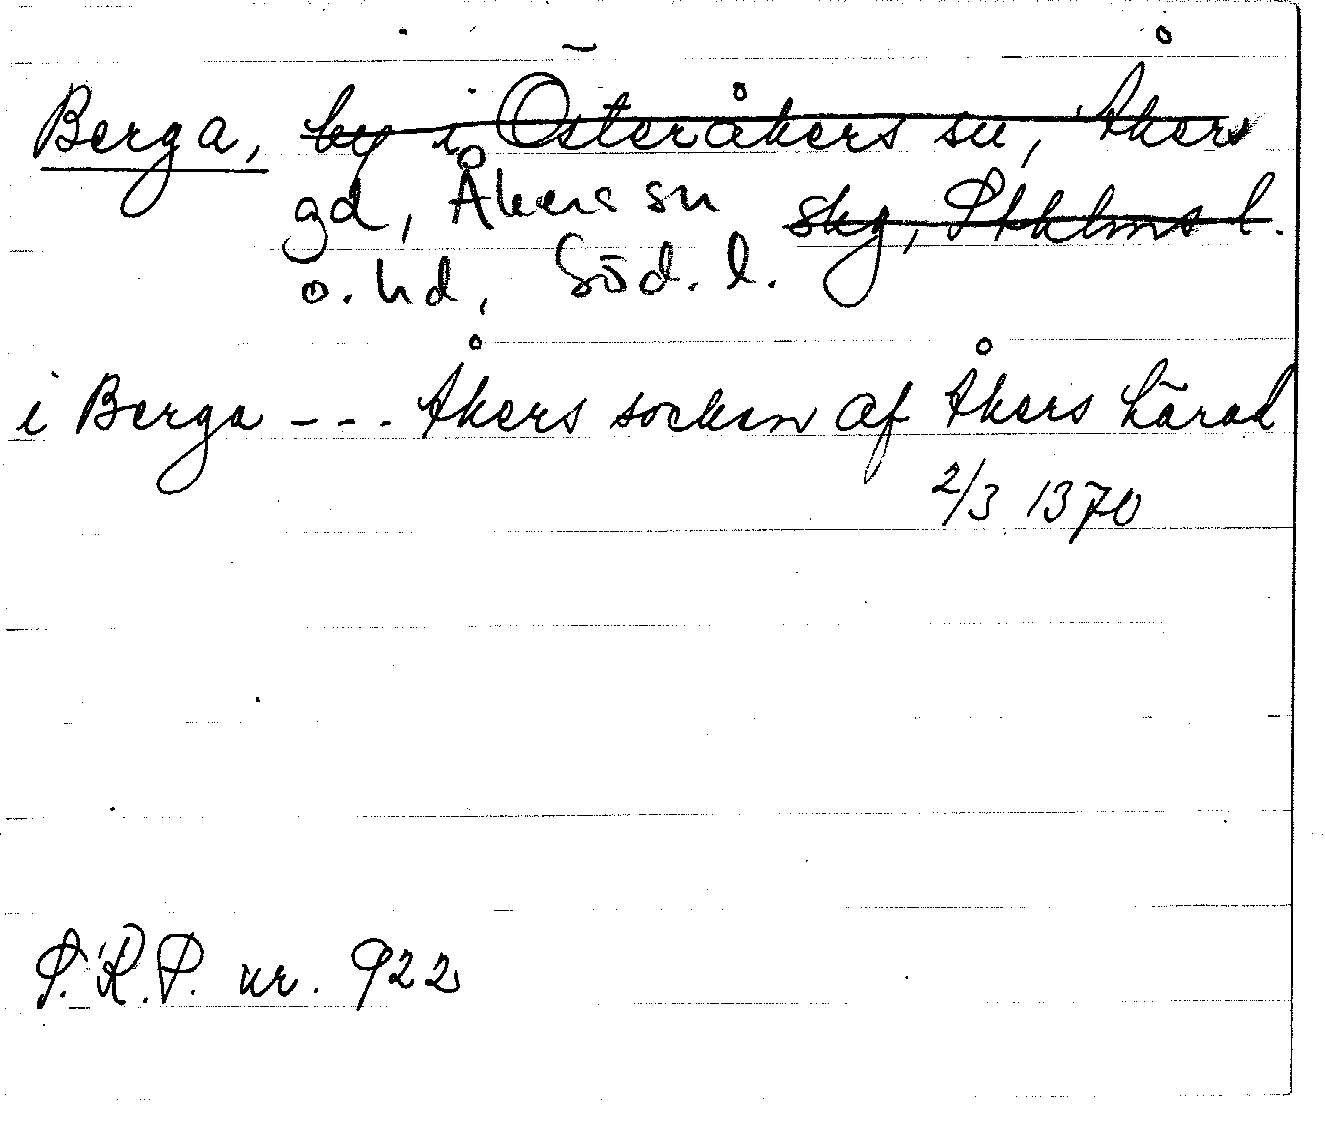 Berga, by i Österåkers sn, Åkers
gd, Åkers sn skg, Sthlms l.
o. hd, Söd. l.
i Berga --- Åkers socken af Åkers härad
2/3 1370
S.R.P. nr. 922